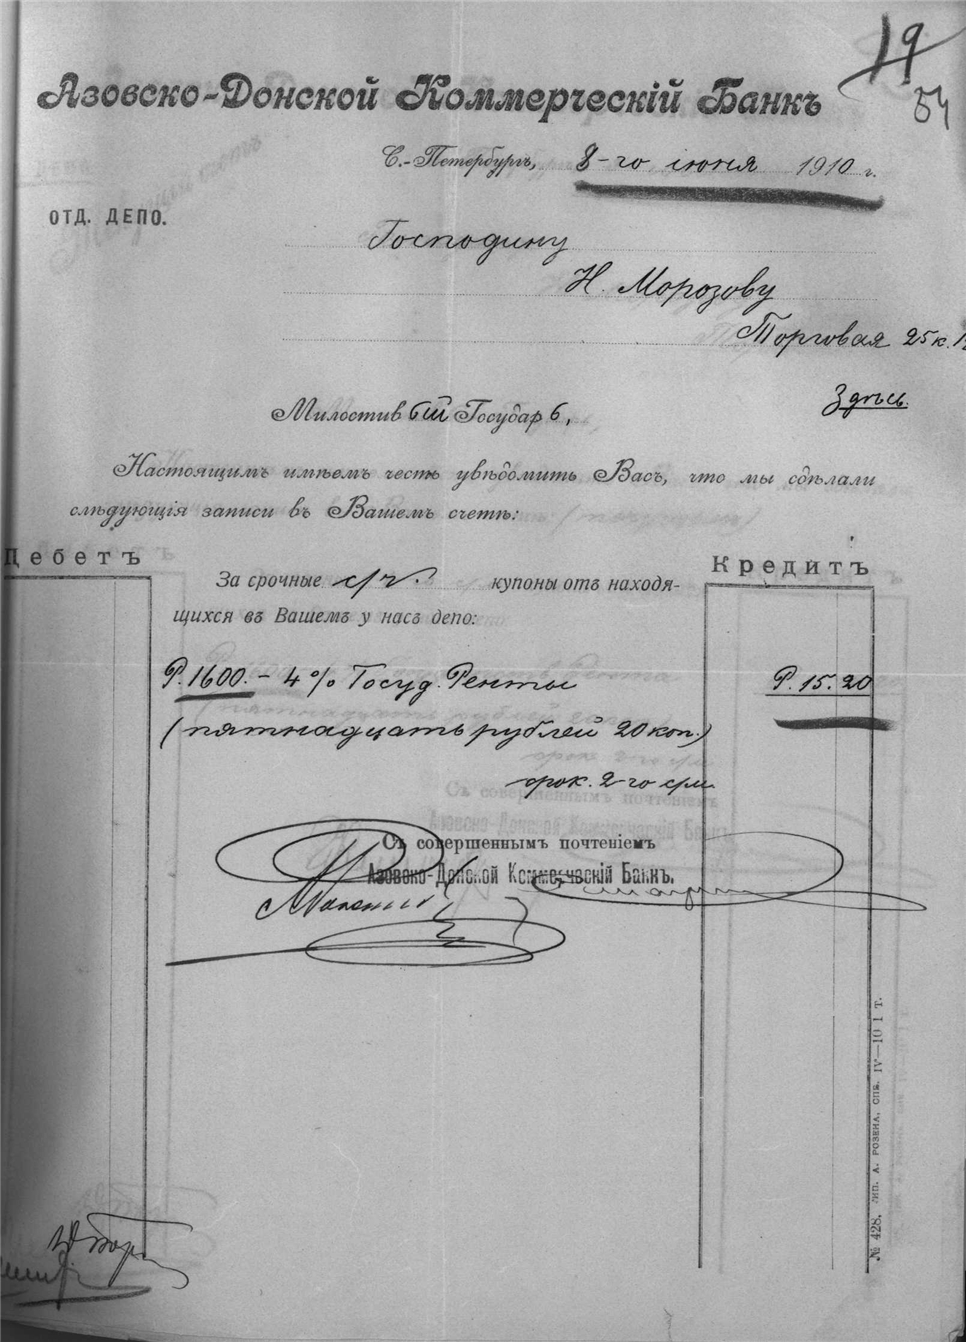 19
54
Азовско-Донской Коммерческій Банкъ
С.-Петербургъ, 8-го іюня 1910 г.
ОТД. ДЕПО.
Господину
Н. Морозову
Торговая 25 к. 1
Здѣсь.
Милостивый Государь,
Настоящимъ имѣемъ честь увѣдомить Васъ, что мы сдѣлали
слѣдующія записи въ Вашемъ счетѣ:
Дебетъ
Кредитъ
За срочные с/ч. купоны отъ находя-
щихся въ Вашемъ у насъ депо:
Р. 1600.- 4% Госуд. Ренты Р. 15.20
(пятнадцать рублей 20 коп.)
срок. 2-го с/м.
Съ совершеннымъ почтеніемъ
Азовско-Донской Коммерческій Банкъ.
№ 428. Тип. А. РОЗЕНА, СПБ. IV—10 1 т.